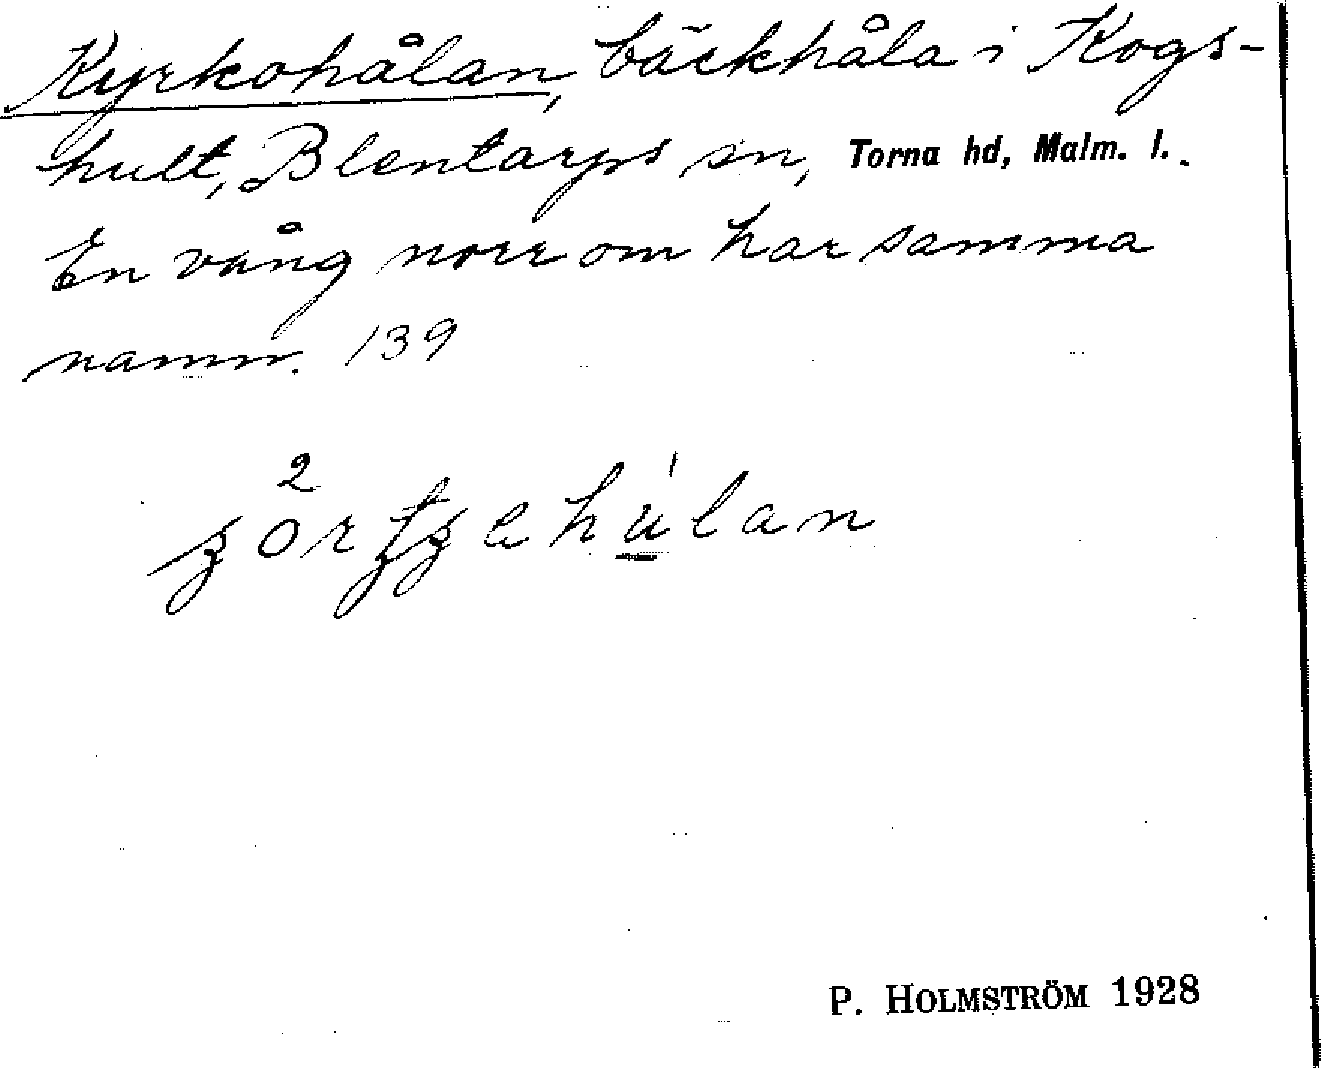 Kyrkohålan, bäckhåla i Kogs-
hult, Blentarps sn, Torna hd, Malm. l.
En vång norr om har samma
namn. 139
P. HOLMSTRÖM 1928